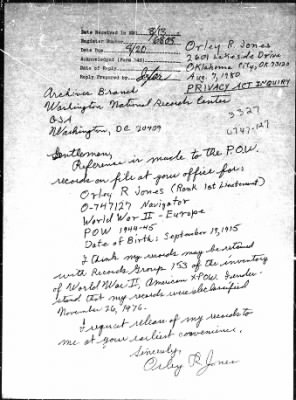 Date Received in NNR: 8/13
Register Number
Date Due 8/20
Acknowledged (Form 14s)
Date of Reply
Reply Prepared by
Orley R. Jones
2601 Lakeside Drive
Oklahoma City, OK 73120
Aug. 7, 1980
PRIVACY ACT INQUIRY
Archives Branch
Washington National Records Center
GSA
Washington, DC 20409
3327
0747-127
Gentlemen,
Reference is made to the P.O.W.
records on file at your office for:
Orley R Jones (Rank 1st Lieutenant)
O-747127 Navigator
World War II - Europe
POW 1944-45
Date of Birth: September 19, 1915
I think my records may be retired
with Records Group 153 of the inventory
of World War II, American POW. I under-
stand that my records were declassified
November 26, 1976.
I request release of my records to
me at your earliest convenience.
Sincerely,
Orley R. Jones